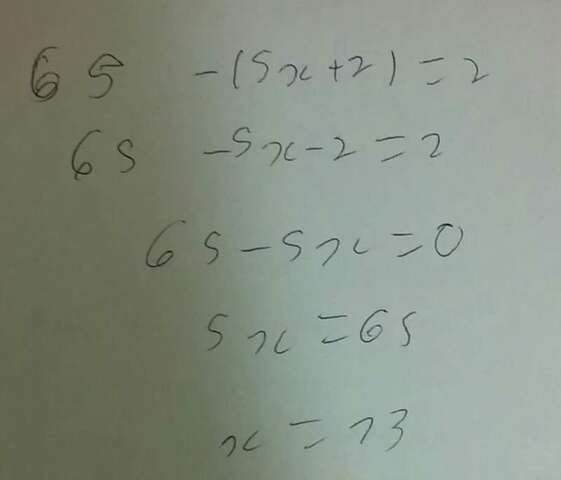 65 -(5x+2)=2
65 -5x-2=2
65-5x=0
5x=65
x=13